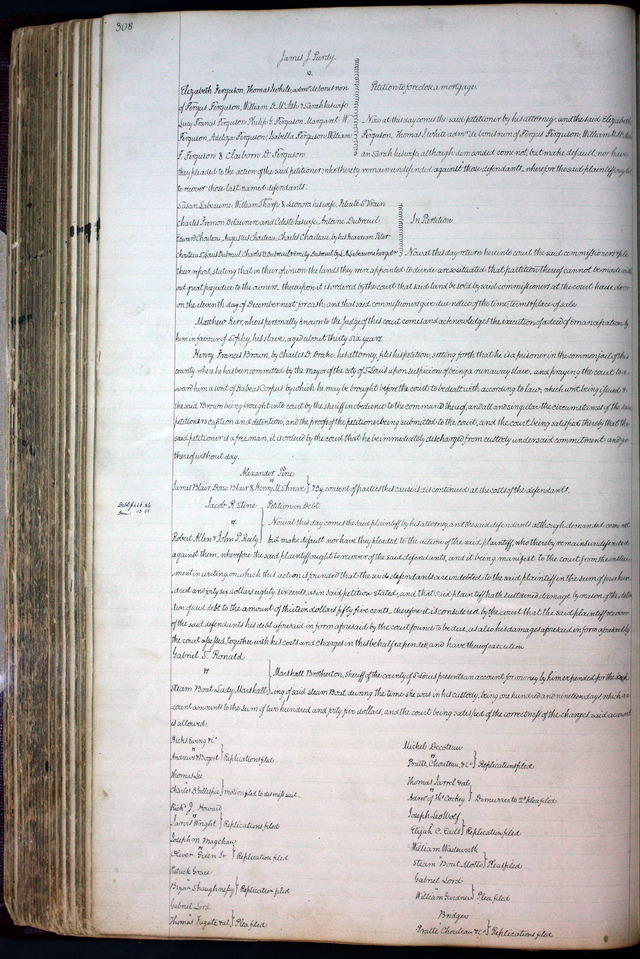 308
James J. Purdy
vs.
Elizabeth Ferguson, Thomas White, admr de bonis non
of Fergus Ferguson, William D. McAsh & Sarah his wife
Lucy Frances Ferguson, Philip G Ferguson, Margaret W.
Ferguson, Adeliza Ferguson, Isabella Ferguson, William
F. Ferguson & Claiborn D. Ferguson
Petition to foreclose a mortgage.
Now at this day comes the said petitioner by his attorney, and the said Elizabeth
Ferguson, Thomas White admr de bonis non of Fergus Ferguson, William D. McAsh
and Sarah his wife, although demanded come not, but make default, nor have
they pleaded to the action of the said petitioner, whothereby remain undefended against those defendants, wherefore the said plaintiff ought
to recover those last named defendants.
Susan Labeaume, William Tharp & Leonora his wife,
Charles Fremon Delauriere and Celeste his wife, Antoine Dubreuil
Edward Chouteau, Augustus Chouteau, Charles Chouteau, by his guardian Peter
Chouteau, Louis Dubreuil, Charles Dubreuil & Emily Dubreuil by L. A. Labeaume her gdn
In Partition
Now at this day return here into court the said commissioners & file
their report, stating that in their opinion the lands they were appointed to divide are so situated that partition thereof cannot be made with
out great prejudice to the owners, thereupon it is ordered by the court that said land be sold by said commissioners at the court house door
on the eleventh day of December next for cash; and that said commissioners give due notice of the time, terms & place of sale.
Matthew Kerr, who is personally known to the Judge of this court comes and acknowledges the execution of a deed of emancipation by
him in favour of Sophy, his slave, aged about thirty six years.
Henry Francis Brown, by Charles D. Drake, his attorney, files his petition, setting forth that he is a prisoner in the common jail of this
county where he has been committed by the mayor of the city of St Louis upon suspicion of being a runaway slave, and praying the court to a
ward him a writ of Habeas Corpus by which he may be brought before the court to be dealt with according to law; which writ being issued &
the said Brown being brought into court by the sheriff in obedience to the command thereof, and all and singular the circumstances of the said
petitioner's caption and detention, and the proofs of the petitioner being submitted to the court; and the court being satisfied thereby that the
said petitioner is a free man, it is ordered by the court that he be immediately discharged from custody under said commitment and go
thereof without day.
Alexander Pine
vs
James Blair, Benz Blair & Henry M. Shreve } By consent of parties this cause is discontinued at the costs of the defendants.
Debt $446.86
Dam. 13.55
Jacob R. Stine
vs.
Robert Allen & John P. Reily
Petition in Debt
Now at this day comes the said plaintiff by his attorney, and the said defendants although demanded come not
but make default nor have they pleaded to the action of the said plaintiff, who thereby remains undefended
against them, wherefore the said plaintiff ought to recover of the said defendants, and it being manifest to the court from the instru
ment in writing on which this action is founded that the said defendants are indebted to the said plaintiff in the sum of four hun
dred and forty six dollars eighty six cents, as in said petition stated; and that said plaintiff hath sustained damage by reason of the deten
tion of said debt to the amount of thirteen dollars fifty five cents, therefore it is considered by the court that the said plaintiff recover
of the said defendants his debt aforesaid in form aforesaid by the court found to be due, as also his damages aforesaid in form aforesaid by
the court assessed, together with his costs and charges in this behalf expended, and have thereof execution.
Gabriel S. Ronald
vs
Steam Boat Lady Marshall
Marshall Brotherton, Sheriff of the county of St Louis presents an account for money by him expended for the keep
ing of said steam Boat during the time she was in his custody, being one hundred and nineteen days, which ac
count amounts to the sum of two hundred and forty five dollars, and the court being satisfied of the correctness of the charges, said account
is allowed.
Hicks Ewing &c
vs
Andrews & Bogert } Replications filed.
Thomas Lee
vs
Charles D. Gillespie } motion filed to dismiss suit.
Richd J. Howard
vs
James Wright } Replications filed
Joseph M Magehan
vs
Oliver Green Jr } Replication filed
Patrick Grace
vs
Bryan Shaughnessy } Replication filed
Gabriel Lord
vs
Thomas Fugate et al } Plea filed
Michel Decoteau
vs
Pratte, Chouteau, & Co } Replications filed.
Thomas Jarrel et al,
vs
Admr of Thos Coskey } Demurrer to 2d plea filed
Joseph Leo Wolf
vs
Elijah C. Eads } Replication filed
William Wadsworth
vs
Steam Boat Motto } Pleas filed
Gabriel Lord
vs
William Gardner } Plea filed
Bridger
vs
Pratte Chouteau &c } Replications filed